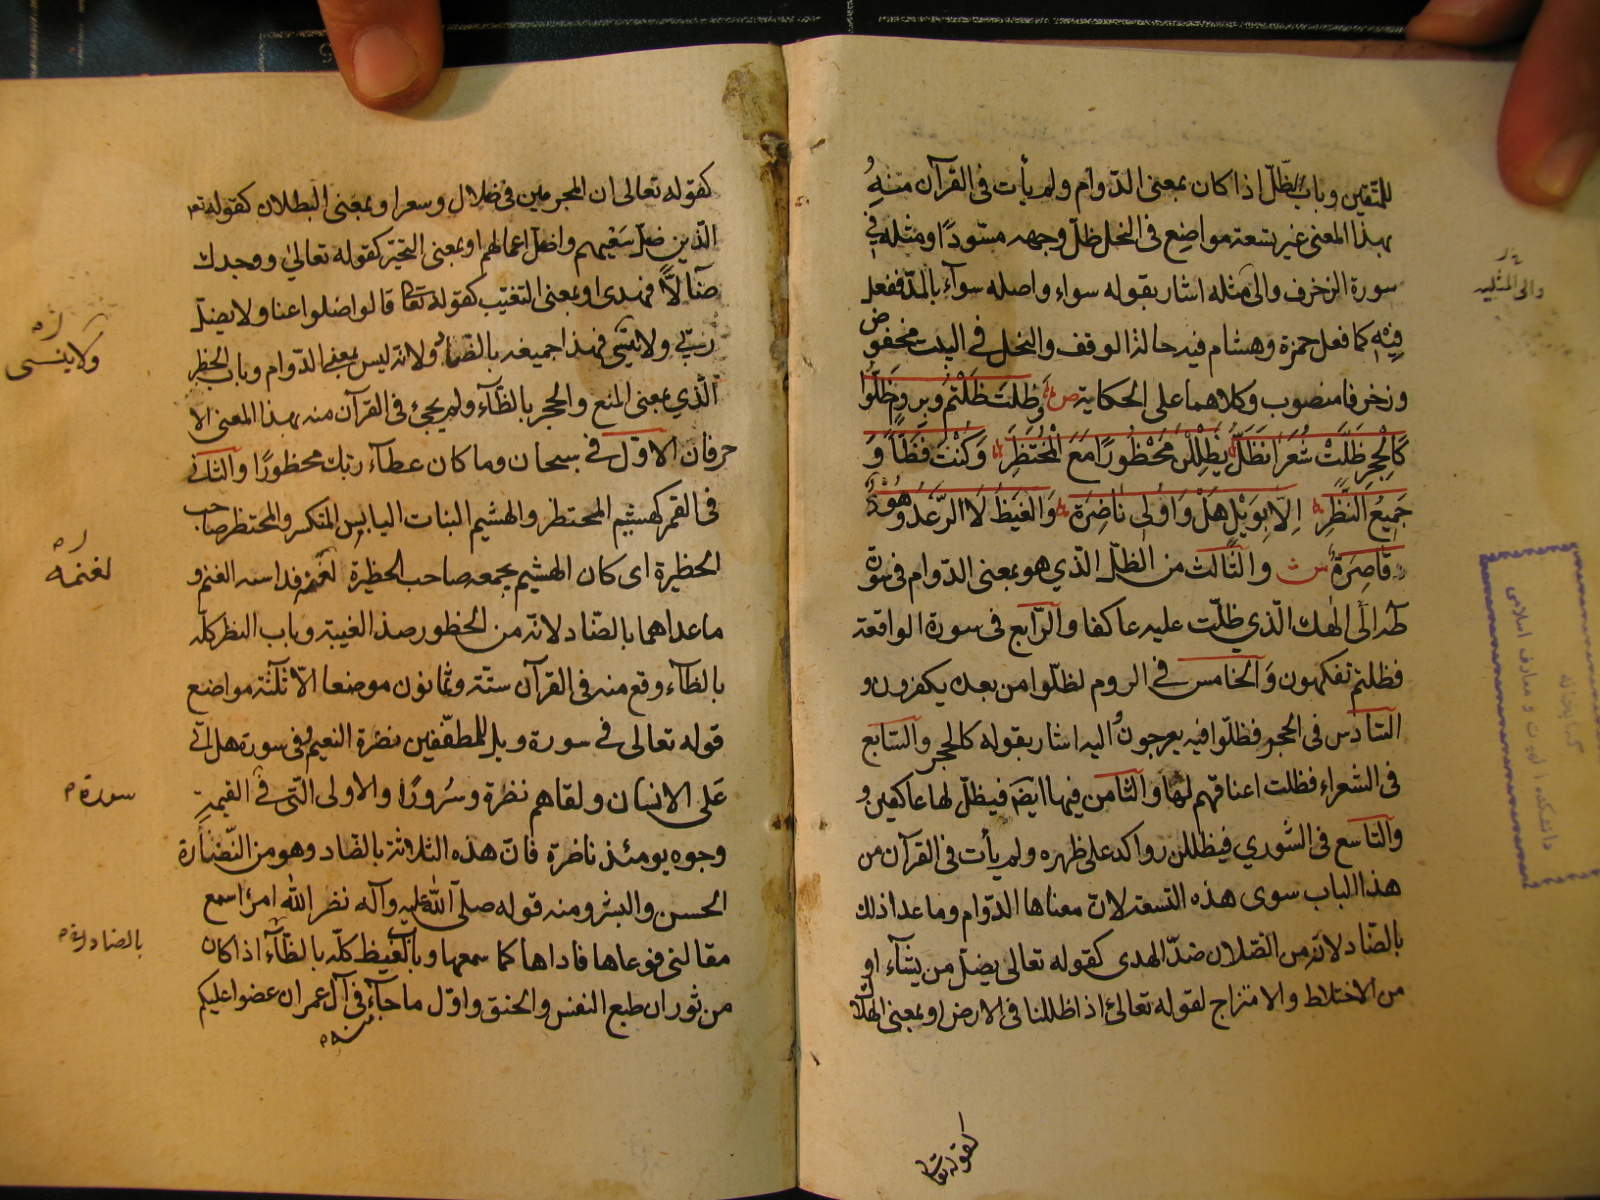 للمتّقين وباب الظّلّ اذا كان بمعنى الدّوام ولم يأت فى القرآن منه
بهذا المعنى غير تسعة مواضع فى النحل ظلّ وجهه مسّودًا ومثله فى
سورة الزخرف والى مثله اشار بقوله سواء واصله سوآء بالمدّ ففعل
فيه كما فعل حمزة وهشام فيه حالة الوقف والنحل فى البيت مخفوض
وزخرفا منصوب وكلاهما على الحكاية ص وظلت ظلتم وبروم ظلّوا
كالحجر ظلّت شعرا نظلّ يظللن محظورًا مع المحتظر وكنت فظّا و
جميع النّظر الّا بويل هل واولى ناضرة والغيظ لا الرّعد وهود
قاصرة ش والثّالث من الظلّ الذي هو بمعنى الدّوام فى سورة
طه الى الهك الّذي ظلّت عليه عاكفا والرّابع فى سورة الواقعة
فظلتم تفكهون والخامس فى الروم لظلّوا من بعده يكفرون و
السّادس فى الحجر فظلّوا فيه يعرجون واليه اشار بقوله كالحجر والسّابع
فى الشعراء فظلت اعناقهم لها والثّامن فيها ايضًا فيظلّ لها عاكفين و
والتاسع فى الشّوري فيظللن رواكد على ظهره ولم يأت فى القرآن من
هذا الباب سوى هذه التسعة لانّ معناها الدّوام وما عدا ذلك
بالضّاد لانّه من الضّلال ضدّ الهدى كقوله تعالى يضلّ من يشآء او
من الاختلاط والامتزاج لقوله تعالى ءاذا ظللنا فى الارض او بمعنى الهلاك
كقوله تعا
والى المثليه
كتابخانه
دانشكده الهيات و معارف اسلامى
كقوله تعالى ان المجرمين فى ضلال وسعر او بمعنى البطلان كقوله تع
الّذين ضلّ سعيهم واضلّ اعمالهم او بمعنى التحيّر كقوله تعالى ووجدك
ضآلاًّ فهدى او بمعنى التغيّب كقوله تعا قالوا ضلوا عنا ولا يضلّ
ربّي ولا ينسى فهذا جميعه بالضاد ولانّه ليس بمعنى الدّوام وباب الحظر
الّذي بمعنى المنع والحجر بالظآء ولم يجئ فى القرآن منه بهذا المعنى الا
حرفان الاوّل فى سبحان وما كان عطآء ربّك محظورًا والثانى
فى القمر كهشيم المحتظر والهشيم النبات اليابس المتكسر والمحتظر صاحب
الحظيرة اى كان الهشيم يجمعه صاحب الحظيرة لغنمه فداسه الغنم و
ما عداهما بالضّاد لانّه من الحظور ضدّ الغيبة وباب النظر كلّه
بالظآء وقع منه فى القرآن ستّة وثمانون موضعا الّا ثلثة مواضع
قوله تعالى فى سورة ويل للمطفّفين نضرة النعيم وفى سورة هل اتى
على الانسان ولقاهم نظرة وسرورًا والاولى التى فى القيمة
وجوه يومئذ ناظرة فانّ هذه الثلاثة بالضاد وهو من النّضارة
الحسن والبشر ومنه قوله صلّى اللّه عليه وآله نظر اللّه امرءا سمع
مقالتى فوعاها فاداها كما سمعها وباب الغيظ كلّه بالظّآء اذا كان
من ثوران طبع النفس والحنق واوّل ما جآء فى آل عمران عضوا عليكم
ولا ينسى
لغنمه
سورة
بالضاد لانه